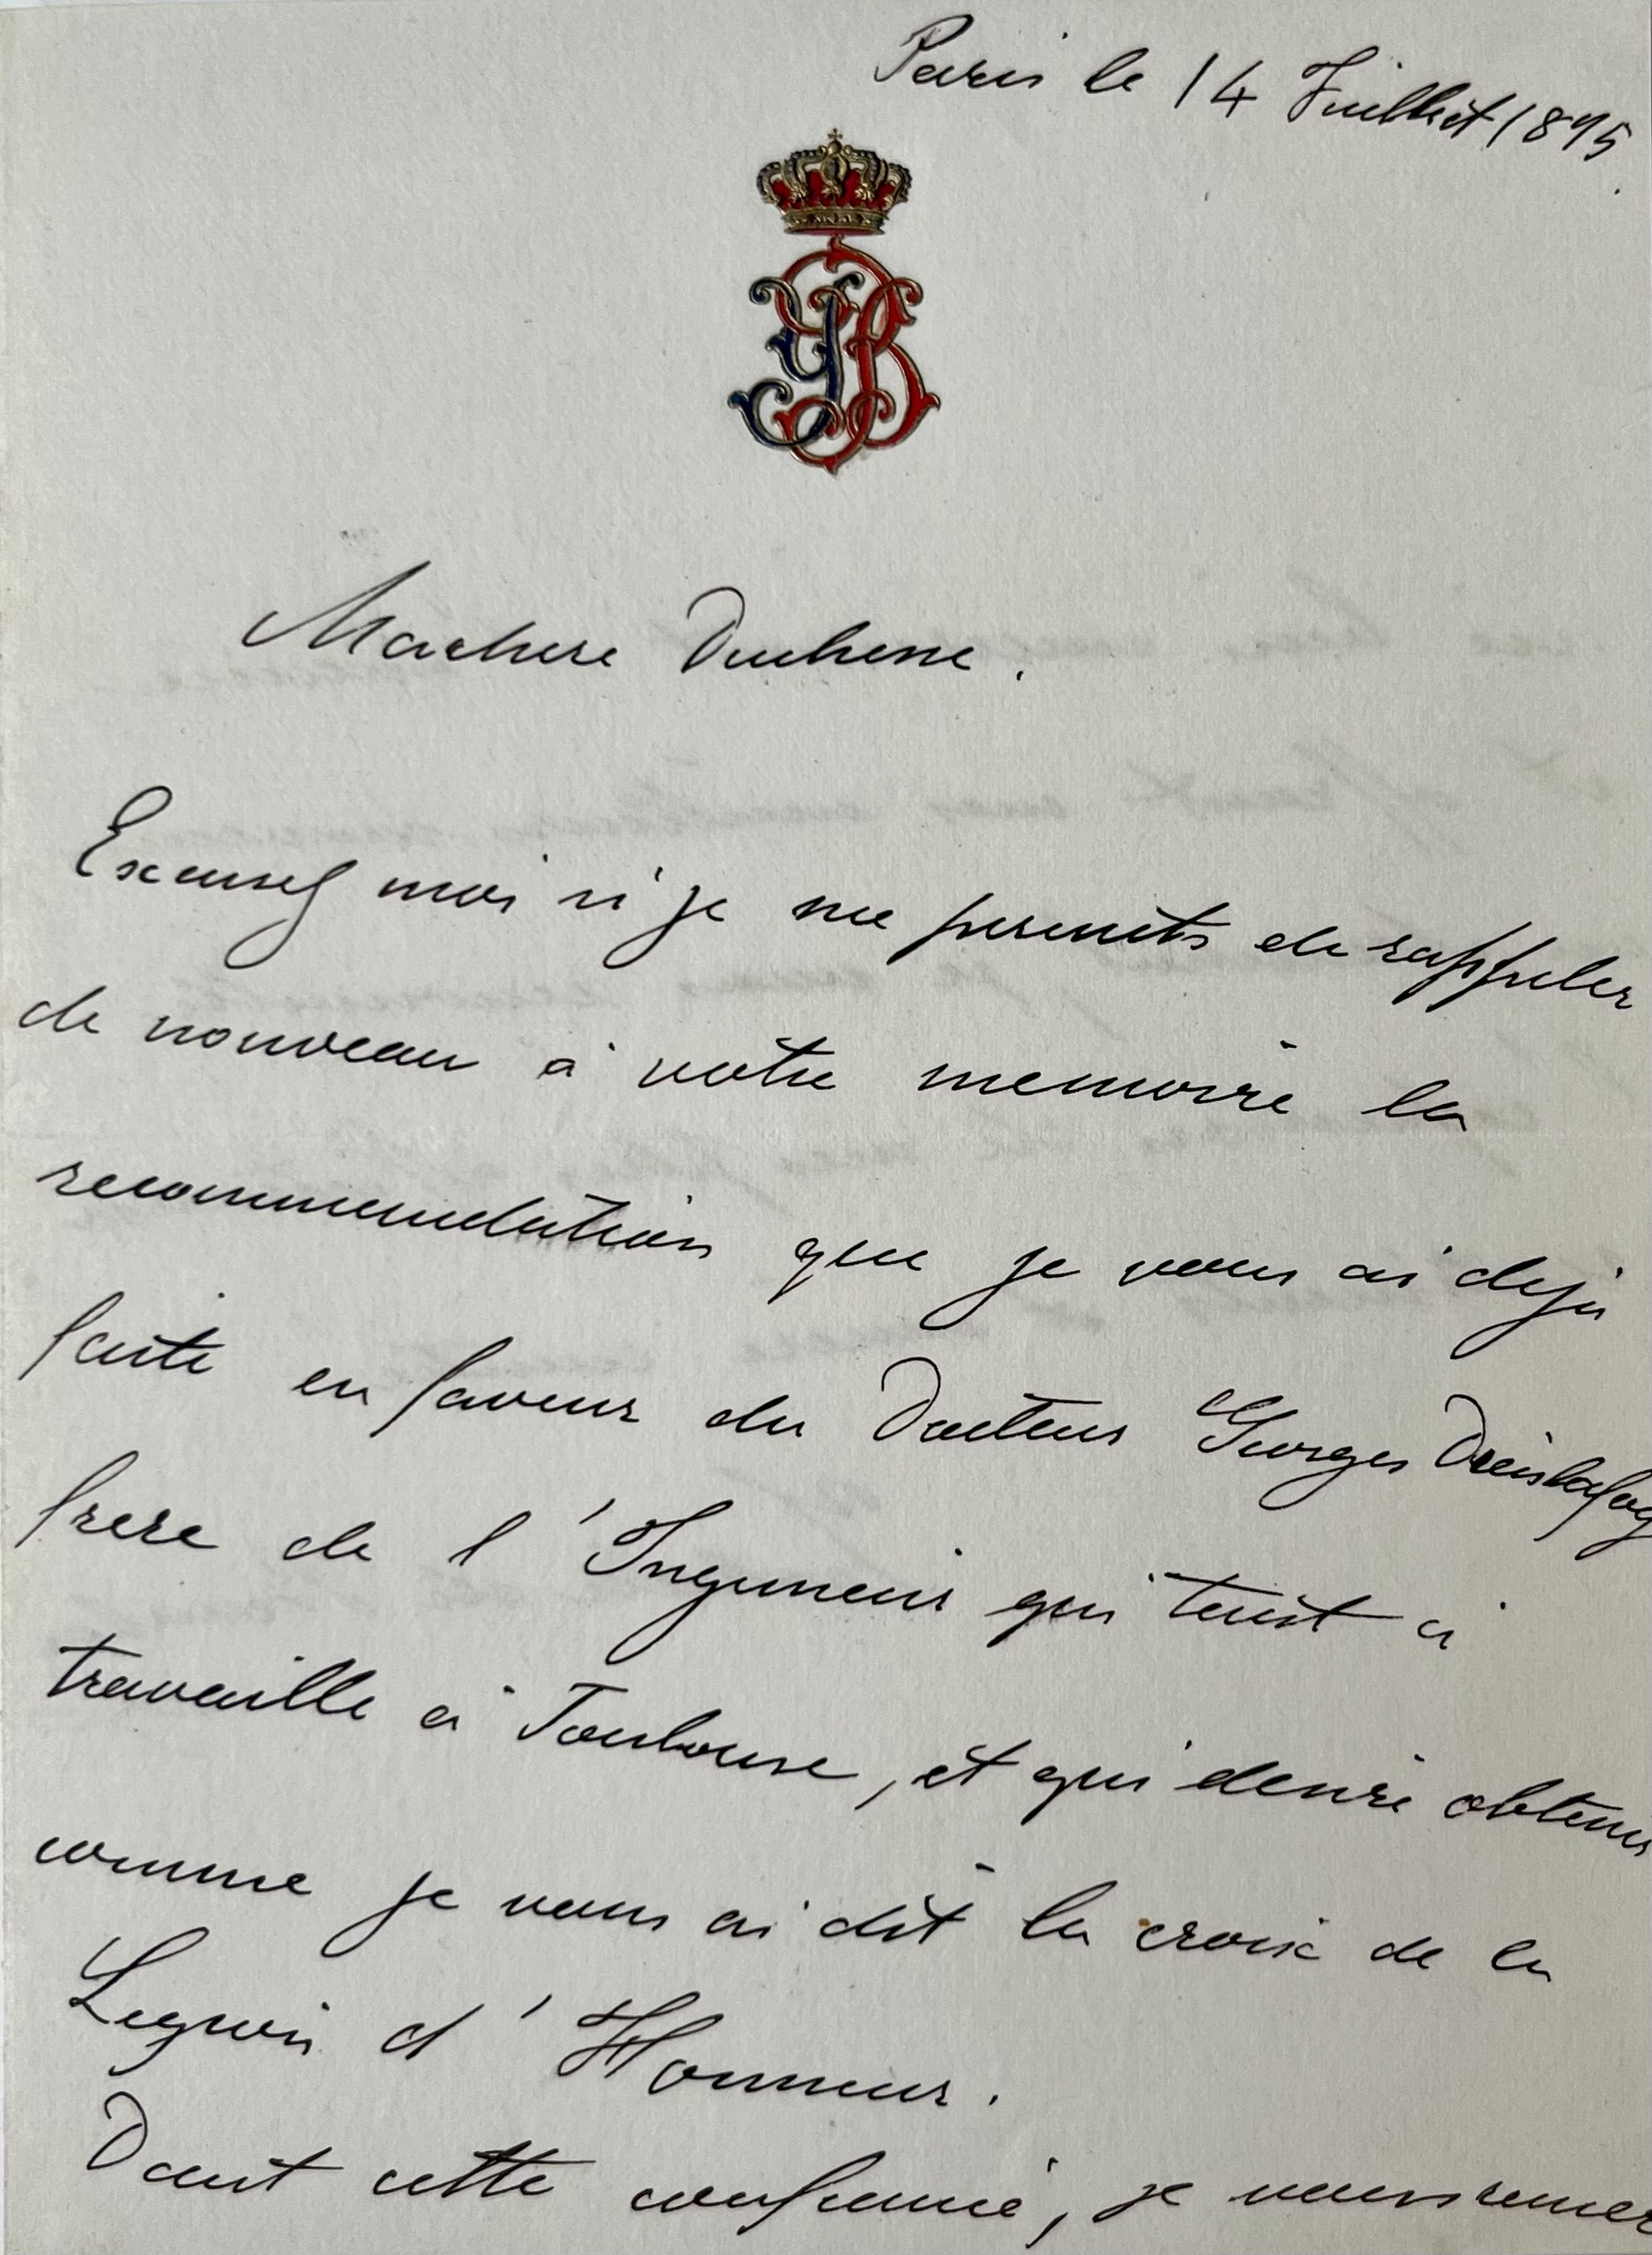 Paris le 14 Juillet 1895.
Ma chere Duchesse.
Excusez moi si je me permets de rappeler
de nouveau à votre memoire la
recommendation que je vous ai deja
faite en faveur du Docteur Georges Dieulafoy
frere de l'Ingenieur qui tant a
travaille a Toulouse, et qui desire obtenir
comme je vous ai dit la croix de la
Legion d'Honneur.
Dant cette confiance, je vous remer